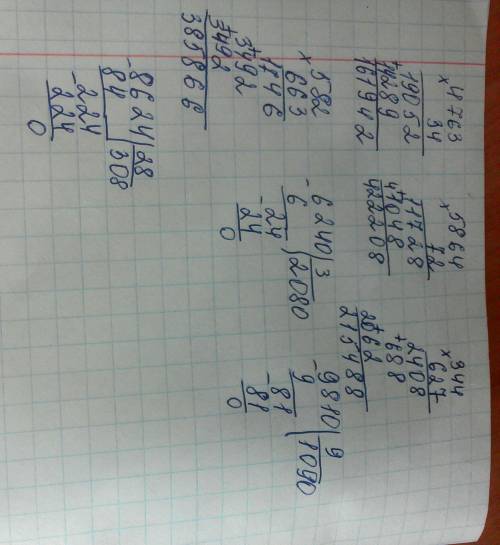 ×4763
34
19052
+14289
161942
×5864
72
11728
+41048
422208
×344
627
2408
+688
2062
215488
×582
663
1746
+3492
3492
385866
-6240|3
6 |2080
-24
24
0
-9810|9
9 |1090
-81
81
0
-8624|28
84 |308
-224
224
0